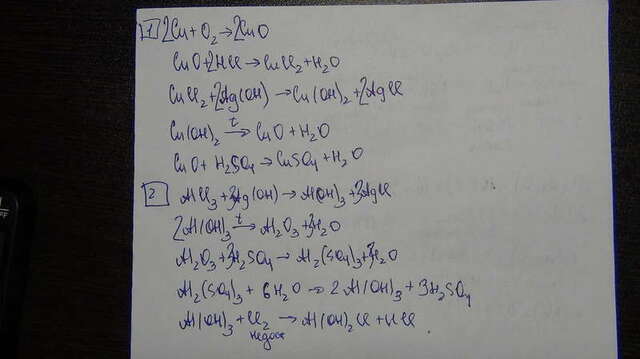 1 2Cu + O₂ → 2CuO
CuO + 2HCl → CuCl₂ + H₂O
CuCl₂ + 2Ag(OH) → Cu(OH)₂ + 2AgCl
Cu(OH)₂ t→ CuO + H₂O
CuO + H₂SO₄ → CuSO₄ + H₂O
2 AlCl₃ + 3Ag(OH) → Al(OH)₃ + 3AgCl
2Al(OH)₃ t→ Al₂O₃ + 3H₂O
Al₂O₃ + 3H₂SO₄ → Al₂(SO₄)₃ + 3H₂O
Al₂(SO₄)₃ + 6H₂O → 2Al(OH)₃ + 3H₂SO₄
Al(OH)₃ + Cl₂ → Al(OH)₂Cl + HCl
недост